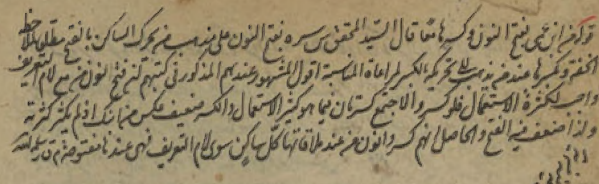 قوله من انرى بفتح النون وكسرها معًا قال السيد المحقق قدس سره بفتح النون على مذهب من يحرك الساكن بالفتح مطلقا لملاحظة
الخفة وكسرها عند من يذهب الى تحريكه بالكسر لمراعاة المناسبة اقول المشهور عندهم المذكور في كتبهم ان فتح النون من مع لام التعريف
واجب لكثرة الاستعمال فلو كسر لاجتمع كسرتان فيما هو كثير الاستعمال والكسر ضعيف عكس من ابنك اذ لم يكثر كثرته
ولذا ضعف فيه الفتح والحاصل انهم كسروا نون من عند ملاقاتها كل ساكن سوى لام التعريف فهى عندها مفتوحة